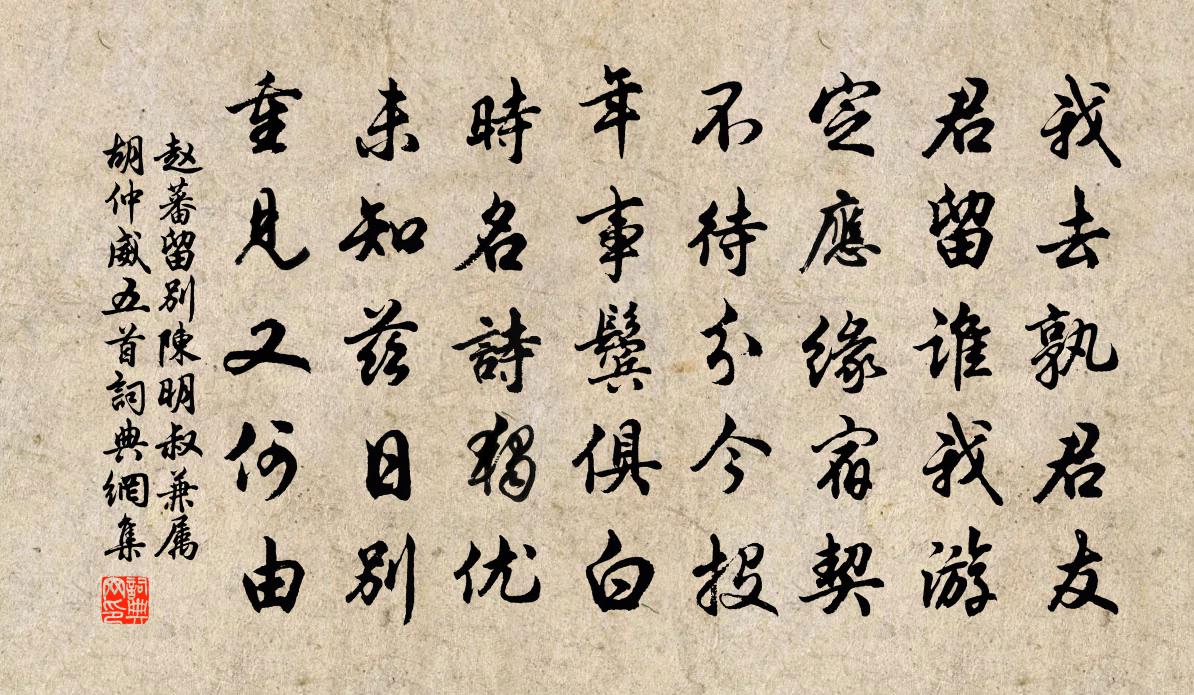 我去孰君友
君留谁我游
定應緣宿契
不待分今投
年事鬓俱白
時名詩獨优
未知兹日別
重見又何由
赵蕃留別陳明叔兼属
胡仲威五首詞典網集
詞典
网印